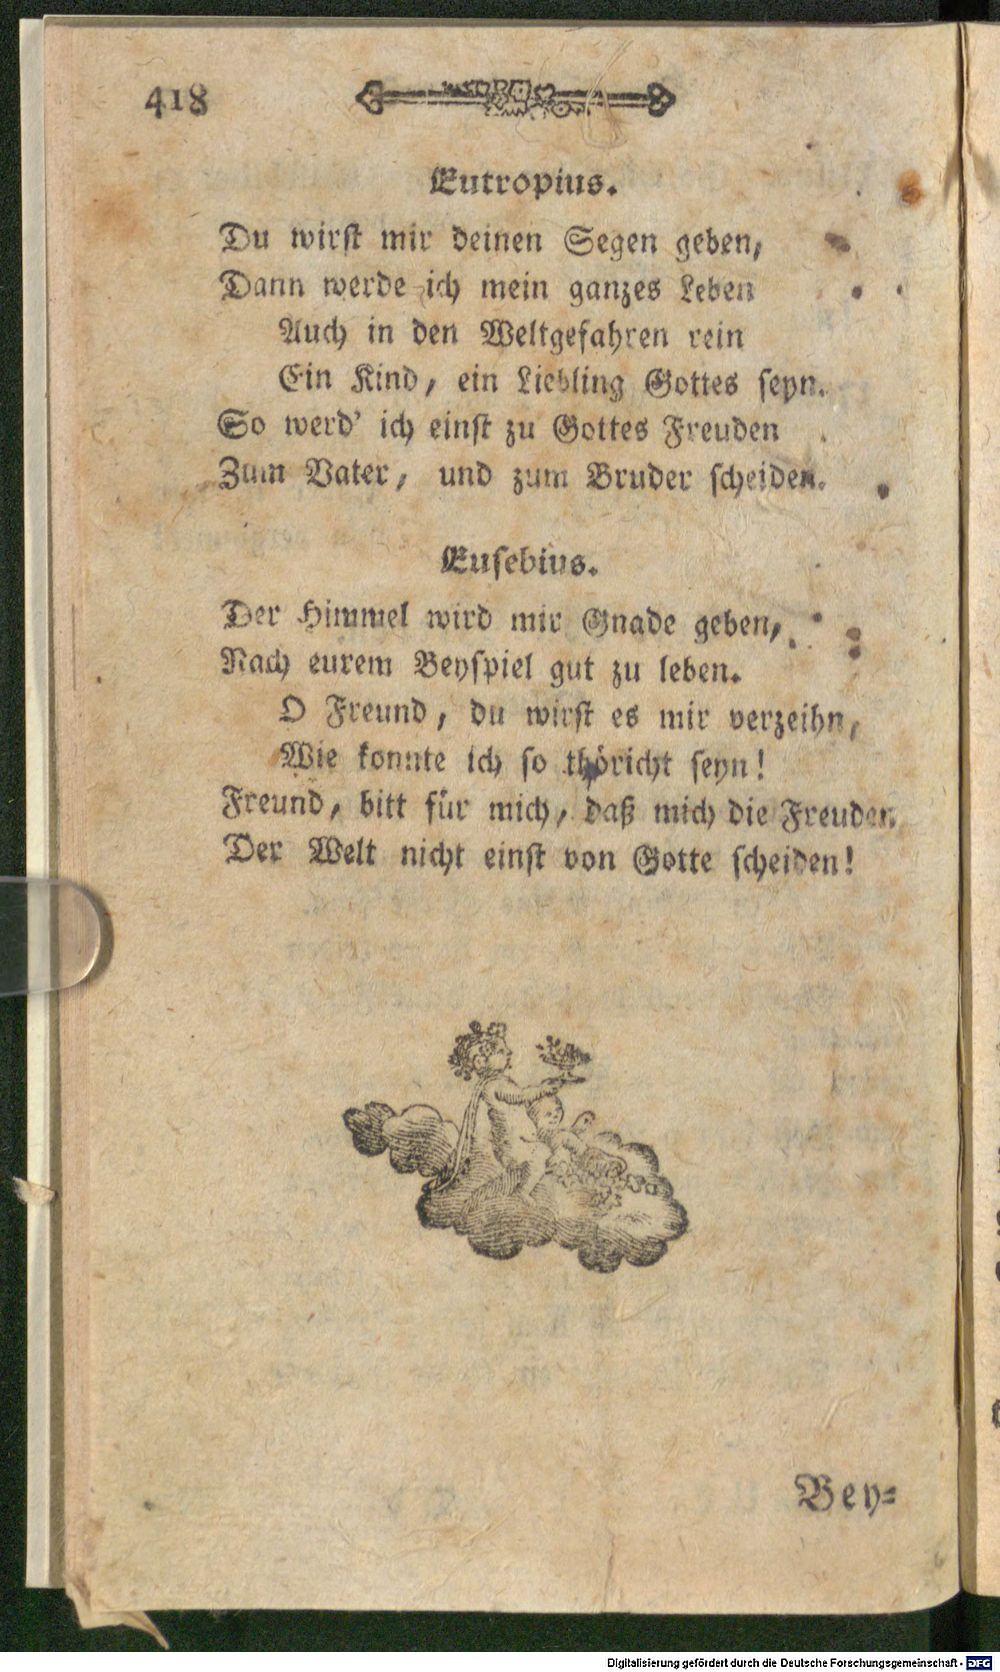 418
Eutropius.
Du wirst mir deinen Segen geben,
Dann werde ich mein ganzes Leben
Auch in den Weltgefahren rein
Ein Kind, ein Liebling Gottes seyn.
So werd' ich einst zu Gottes Freuden
Zum Vater, und zum Bruder scheiden.
Eusebius.
Der Himmel wird mir Gnade geben,
Nach eurem Beyspiel gut zu leben.
O Freund, du wirst es mir verzeihn,
Wie konnte ich so thöricht seyn!
Freund, bitt für mich, daß mich die Freuden
Der Welt nicht einst von Gotte scheiden!
Bey=
Digitalisierung gefördert durch die Deutsche Forschungsgemeinschaft - DFG